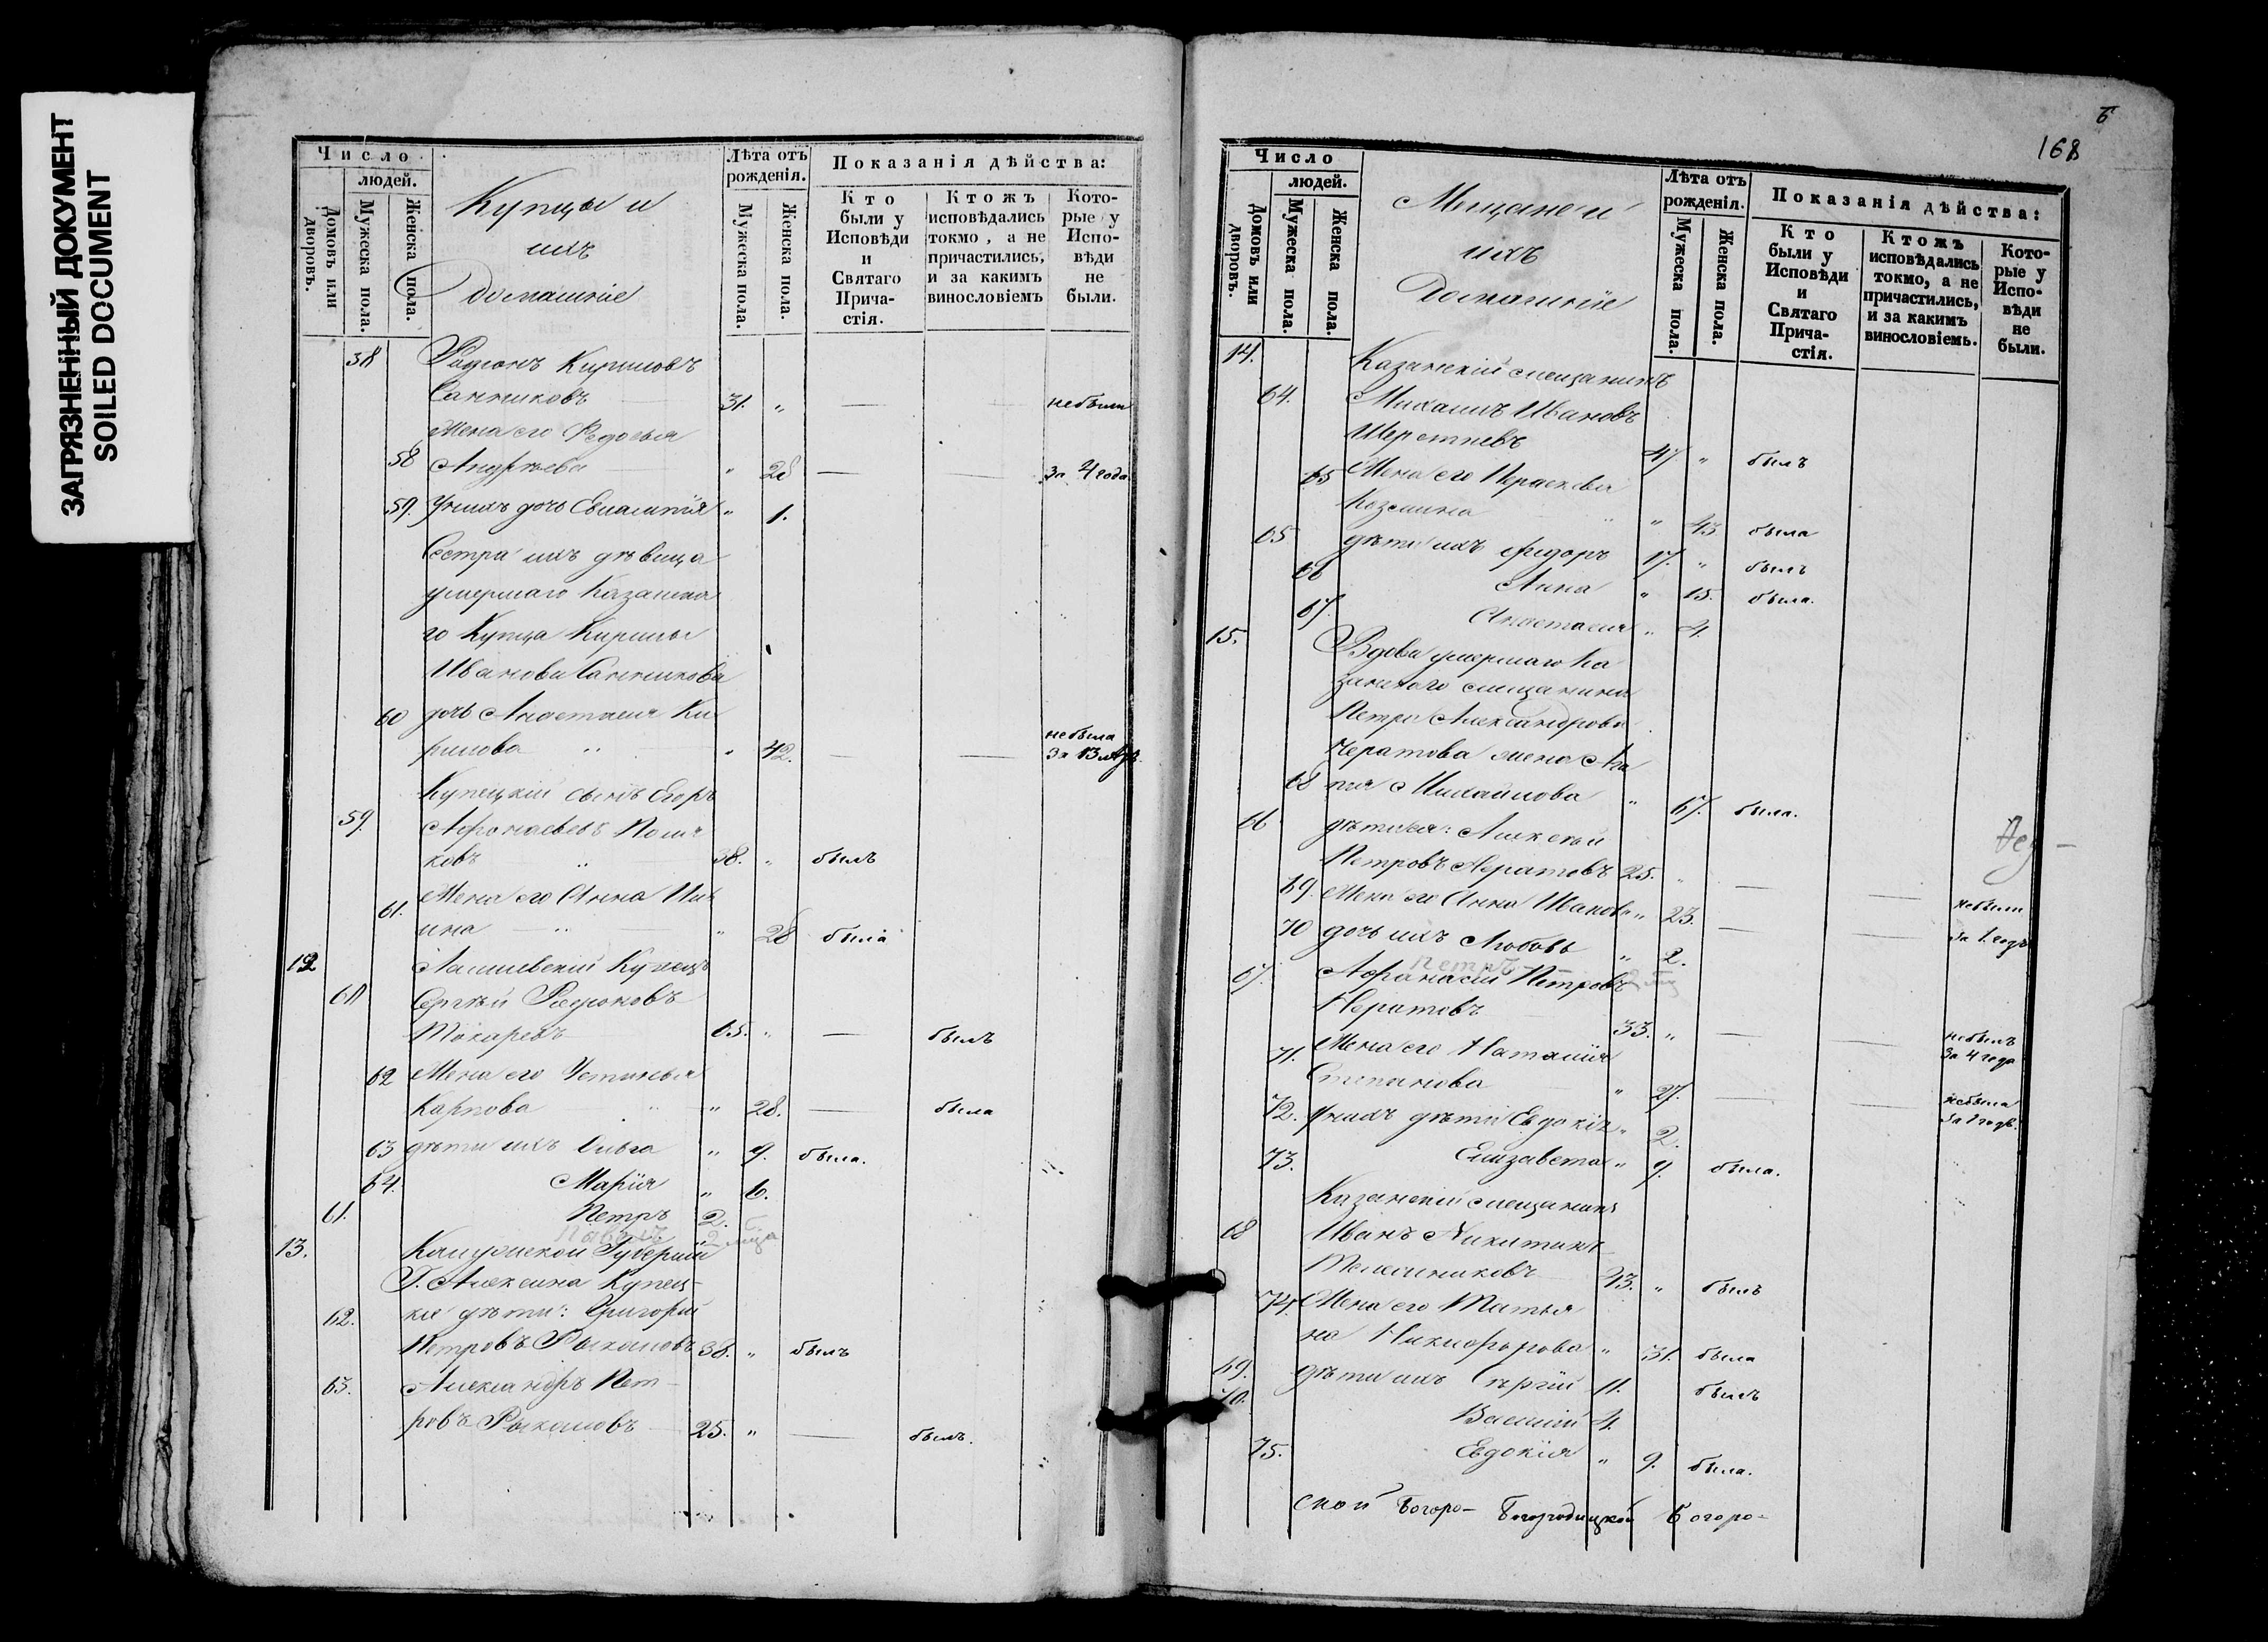 ЗАГРЯЗНЕННЫЙ ДОКУМЕНТ
SOILED DOCUMENT
Число
людей.
Домовъ или дворовъ.
Мужеска пола.
Женска пола.
Купцы и
ихъ
домашніе
Лѣта отъ рожденія.
Мужеска пола.
Женска пола.
Показанія дѣйства:
Кто были у Исповѣди и Святаго Причастія.
Ктожъ исповѣдались токмо, а не причастились, и за какимъ винословіемъ
Которые у Исповѣди не были.
38 Родіонъ Кириловъ
Санниковъ 31. " — — небыли
Жена его Федосья
58 Андрѣева " 28 — — за 4 года
59. У нихъ дочь Евлампія " 1.
Сестра ихъ дѣвица
умершаго Казанска
го Купца Кирилы
Иванова Санникова
60 дочь Анастасія Ки
рилова " 42. — — небыла за 13 лѣтъ
Купецкій сынъ Егоръ
59. Афонасьевъ
ковъ 38. " былъ
61. Жена его Анна Иль
ина " 28 была
12 Лаишевскій Купецъ
60 Сергѣй Родіоновъ
Токаревъ 65. " — былъ
62 Жена его Устинья
Карпова " 28. — была
63 дѣти ихъ Ольга " 9. была.
64. Марія " 6.
61. Петръ 2.
Павелъ 2 мца
13. Калужской Губерніи
Г. Алексина Купец-
62. кіе дѣти: Григорій
Петровъ Рыкаловъ 38. " былъ
63. Александръ Пет-
ровъ Рыкаловъ 25. " — былъ.
6
168
Число
людей.
Домовъ или дворовъ.
Мужеска пола.
Женска пола.
Мещане и
ихъ
Домашніе
Лѣта отъ рожденія.
Мужеска пола.
Женска пола.
Показанія дѣйства:
Кто были у Исповѣди и Святаго Причастія.
Ктожъ исповѣдались токмо, а не причастились, и за какимъ винословіемъ.
Которые у Исповѣди не были.
14. Казанскій мещанинъ
64. Михаилъ Ивановъ
Шереметевъ 47. " былъ
65 Жена его Параскева
Козмина " 43 была
65 дѣти ихъ Федоръ 17. " былъ
66 Анна " 15. была.
67. Анастасія " 4.
15. Вдова умершаго Ка
занскаго мещанина
Петра Александрова
Нератова жена Ага
68 пія Михайлова " 67. была.
66 дѣти ея: Алексѣй
Петровъ Нератовъ 25. " — —
69. Жена его Анна Иванова " 23. — — небыли
70 дочь ихъ Любовь " 2. за 1. годъ
Петръ
67. Афанасій Петровъ
Нератовъ 33. " — — небылъ за 4 года
71. Жена его Наталія
Степанова " 27. — — небыла за 1 годъ.
72. У нихъ дѣти Евдокія " 2.
73. Елизавета " 9. была.
Казанскій мещанинъ
68 Иванъ Никитинъ
Мельниковъ 43. " былъ
74. Жена его Татья
на Никифорова " 31. была
69. дѣти ихъ Сергій 11. былъ
70. Василій 4.
75. Евдокія " 9. была.
ской Богоро- Богородицкой Богоро-